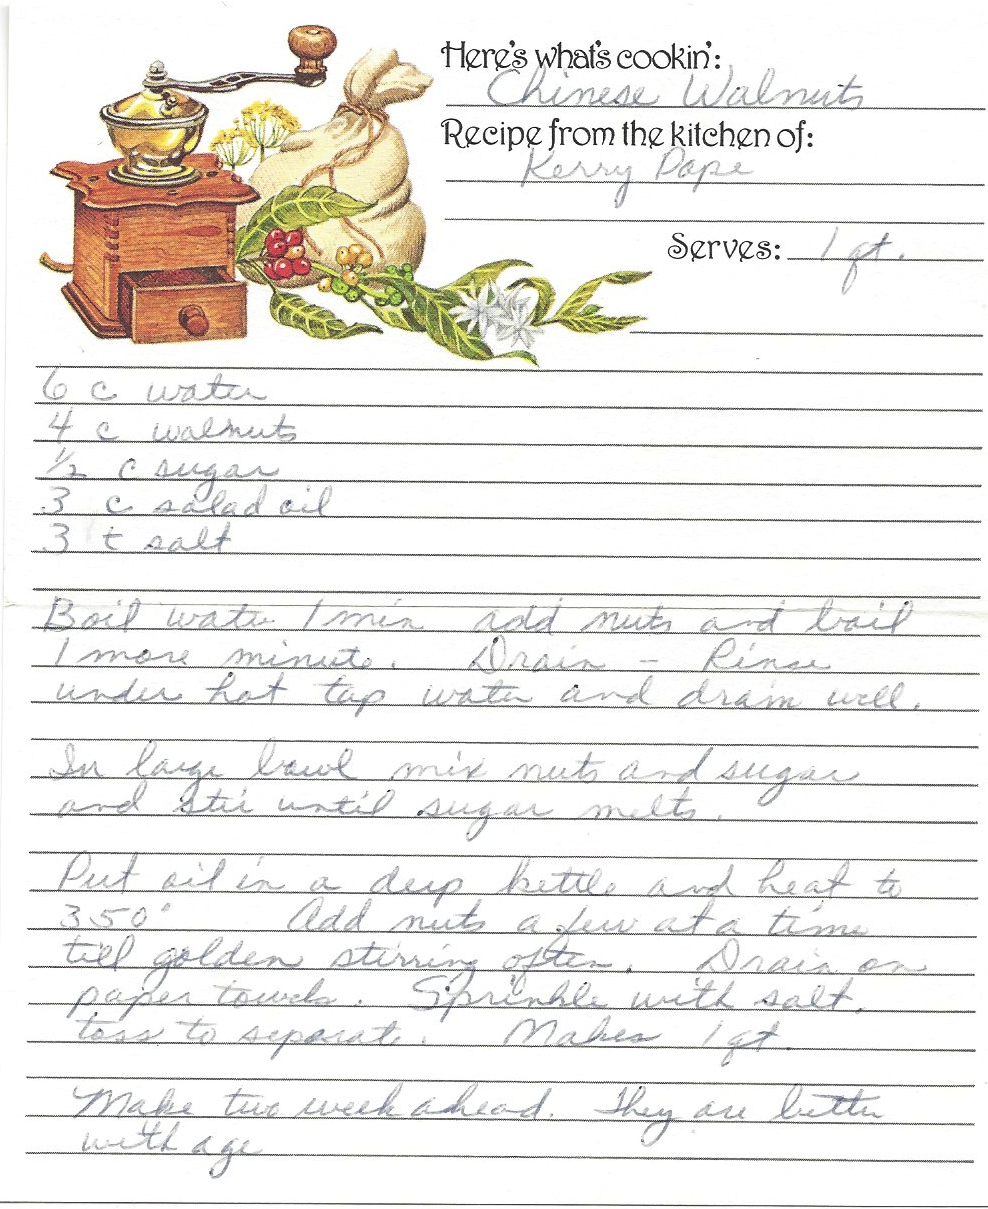 Here's what's cookin':
Chinese Walnuts
Recipe from the kitchen of:
Kerry Pape
Serves: 1 qt.
6 c water
4 c walnuts
1/2 c sugar
3 c salad oil
3 t salt
Boil water 1 min add nuts and boil
1 more minute. Drain - Rinse
under hot tap water and drain well.
In large bowl mix nuts and sugar
and stir until sugar melts.
Put oil in a deep kettle and heat to
350° Add nuts a few at a time
till golden stirring often. Drain on
paper towels. Sprinkle with salt.
toss to separate. Makes 1 qt.
Make two week ahead. They are better
with age